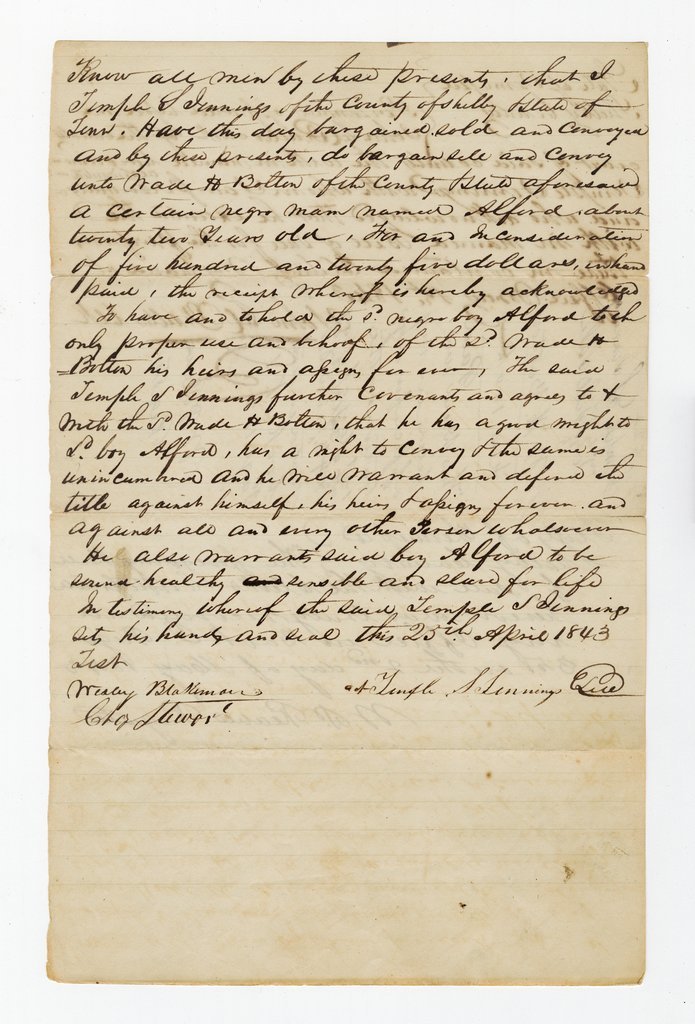 Know all men by these presents, that I
Temple S Jennings of the County of Shelby & State of
Tenn. Have this day bargained, sold and Conveyed
and by these presents, do bargain sell and Convey
unto Wade H Bolton of the County & State aforesaid
a certain negro man named Alford, about
twenty two Years old, For and In Consideration
of five hundred and twenty five dollars, in hand
paid, the receipt whereof is hereby acknowledged
To have and to hold the sd. negro boy Alford to th
only proper use and behoof, of the sd. Wade H
Bolton his heirs and assigns for ever, The said
Temple S Jennings further Covenants and agrees to &
With the Sd. Wade H Bolton, that he has a good wright to
Sd. boy Alford, has a right to convey & the same is
unincumbered and he will warrant and defend the
title against himself, his heirs & assigns forever and
against all and every other Person whatsoever
He also warrants said boy Alford to be
sound healthy sensible and slave for life
In testimony whereof the said Temple S Jennings
sets his hand, and seal this 25th April 1843
Test
Wesley Blakemore Temple S Jennings
Chas Stewart